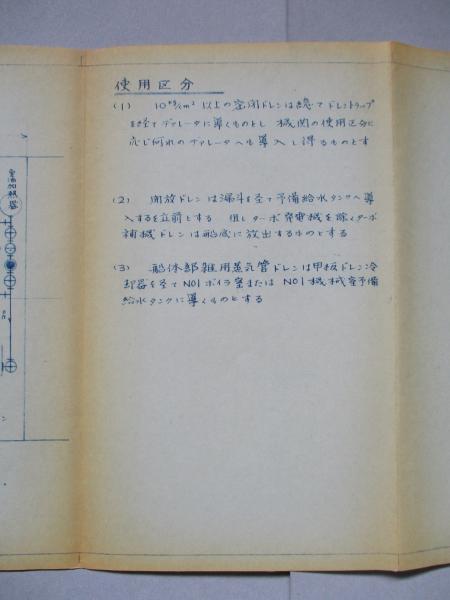 使用区分
(1) 10 kg/cm² 以上の密閉ドレンは総てドレントラップ
を経てデアレータに導くものとし 機関の使用区分に
応じ何れのデアレータへも導入し得るものとす
(2) 開放ドレンは漏斗を経て予備給水タンクへ導
入するを立前とする 但しターボ発電機を除くターボ
補機ドレンは船底に放出するものとする
(3) 船体部雑用蒸気管ドレンは甲板ドレン冷
却器を経て NO1 ボイラ室または NO1 機械室予備
給水タンクに導くものとする
加熱器